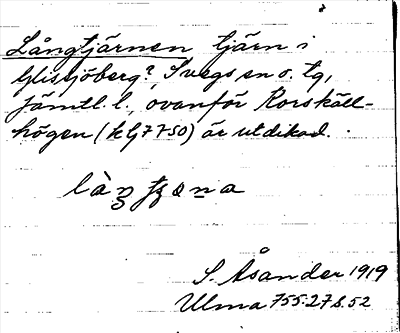 Långtjärnen tjärn i
Glissjöberg?, Svegs sn o. tg,
Jämtl. l., ovanför Korskäll-
högen (kG 7750) är utdikad.
S. Åsander 1919
Ulma 755:27 s. 52